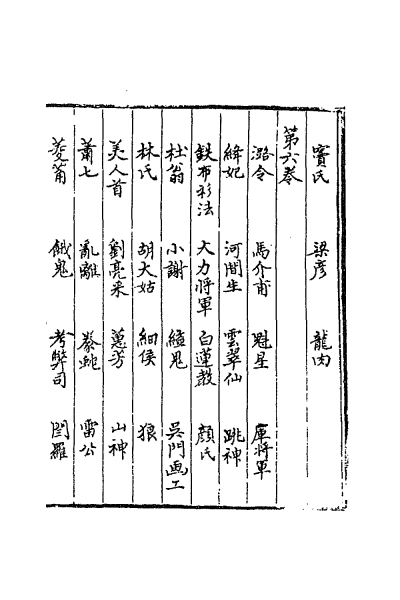 竇氏 梁彥 龍肉
第六卷
潞令 馬介甫 魁星 厙將軍
絳妃 河間生 雲翠仙 跳神
鉄布衫法 大力將軍 白蓮教 顏氏
杜翁 小謝 縊鬼 吳門画工
林氏 胡大姑 細侯 狼
美人首 劉亮采 蕙芳 山神
蕭七 亂離 豢蛇 雷公
菱角 餓鬼 考弊司 閻羅